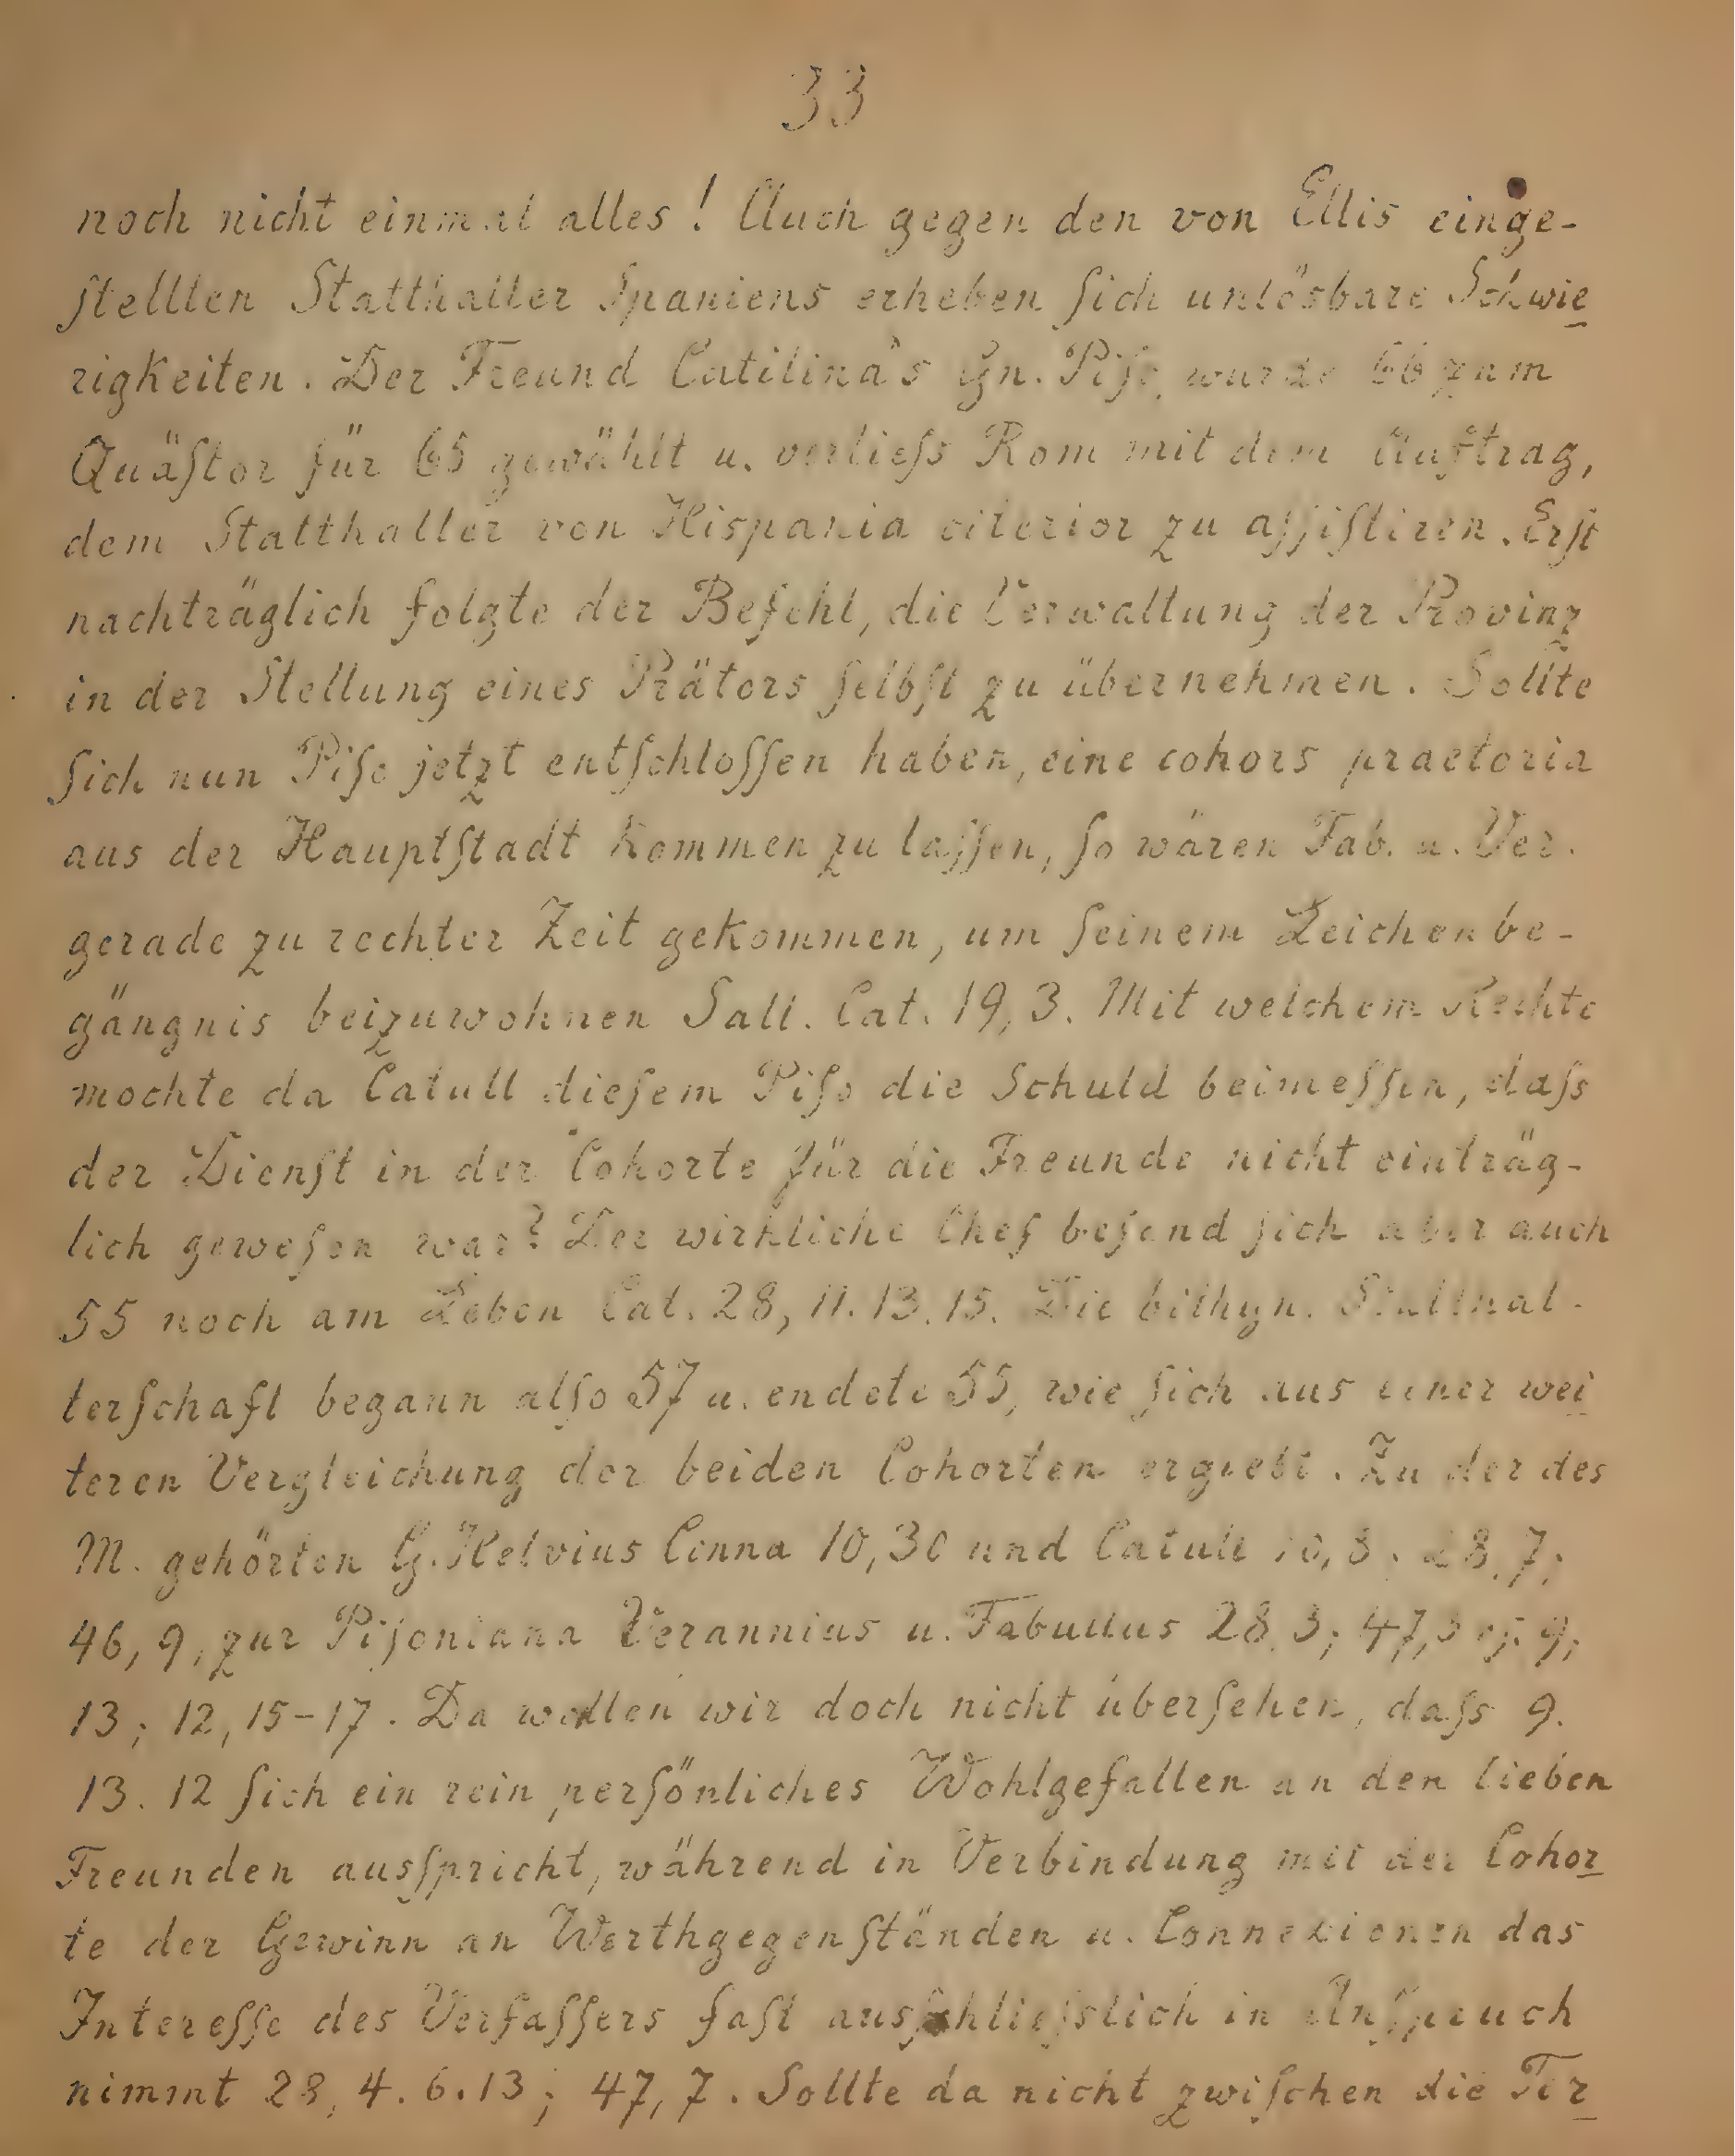 33
noch nicht einmal alles! Auch gegen den von Ellis einge-
ſtellten Statthalter Spaniens erheben ſich unlösbare Schwie
rigkeiten. Der Freund Catilina's Gn. Piſo wurde 66 zum
Quäſtor für 65 gewählt u. verlieſs Rom mit dem Auftrag,
dem Statthalter von Hispania citerior zu aſſiſtiren. Erſt
nachträglich folgte der Befehl, die Verwaltung der Provinz
in der Stellung eines Prätors ſelbſt zu übernehmen. Sollte
ſich nun Piſo jetzt entſchloſſen haben, eine cohors praetoria
aus der Hauptſtadt kommen zu laſſen, ſo wären Fab. u. Ver.
gerade zu rechter Zeit gekommen, um ſeinem Leichenbe-
gängnis beizuwohnen Sall. Cat. 19, 3. Mit welchem Rechte
mochte da Catull dieſem Piſo die Schuld beimeſſen, daſs
der Dienſt in der Cohorte für die Freunde nicht einträg-
lich geweſen war? Der wirkliche Chef befand ſich aber auch
55 noch am Leben Cat. 28, 11. 13. 15. Die bithyn. Statthal-
terſchaft begann alſo 57 u. endete 55, wie ſich aus einer wei
teren Vergleichung der beiden Cohorten ergiebt. Zu der des
M. gehörten G. Helvius Cinna 10, 30 und Catull 10, 8; 28, 7;
46, 9, zur Piſoniana Verannius u. Fabullus 28, 3; 47, 3 9;
13; 12, 15-17. Da wollen wir doch nicht überſehen, daſs 9.
13. 12 ſich ein rein perſönliches Wohlgefallen an den lieben
Freunden ausſpricht, während in Verbindung mit der Cohor
te der Gewinn an Werthgegenſtänden u. Connexionen das
Intereſſe des Verfaſſers faſt ausſchlieſslich in Anſpruch
nimmt 28, 4. 6. 13; 47, 7. Sollte da nicht zwiſchen die Ter